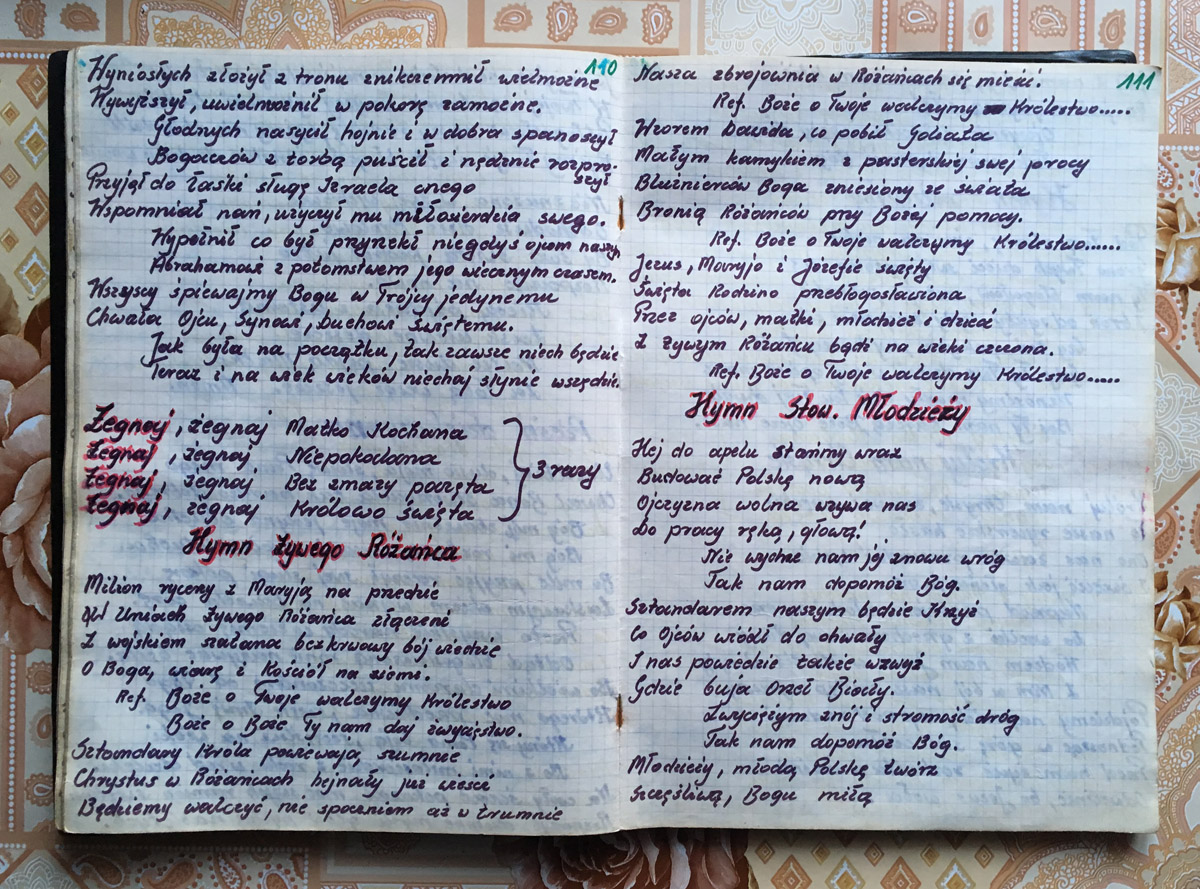 110
Wyniosłych złożył z tronu znikczemnił wielmożne
Wywyższył, uwielmożnił w pokorę zamożne.
Głodnych nasycił hojnie i w dobra spanoszył
Bogaczów z torbą puścił i nędznie rozpro-
szył
Przyjął do łaski sługę Izraela cnego
Wspomniał nań, użyczył mu miłosierdzia swego.
Wypełnił co był przyrzekł niegdyś ojcom naszym
Abrahamowi z potomstwem jego wiecznym czasem.
Wszyscy śpiewajmy Bogu w Trójcy jedynemu
Chwała Ojcu, Synowi, Duchowi Świętemu.
Jak była na początku, tak zawsze niech będzie
Teraz i na wiek wieków niechaj słynie wszędzie.
Żegnaj, żegnaj Matko Kochana
Żegnaj, żegnaj Niepokalana
Żegnaj, żegnaj Bez zmazy poczęta
Żegnaj, żegnaj Królowo święta
3 razy
Hymn Żywego Różańca
Milion rycerzy z Maryją na przedzie
W Uniach Żywego Różańca złączeni
Z wojskiem szatana bezkrwawy bój wiedzie
O Boga, wiarę i Kościół na ziemi.
Ref. Boże o Twoje walczymy Królestwo
Boże o Boże Ty nam daj zwycięstwo.
Sztandary Króla powiewają szumnie
Chrystus w Różańcach hejnały już wieści
Będziemy walczyć, nie spoczniem aż w trumnie
111
Nasza zbrojownia w Różańcach się mieści!
Ref. Boże o Twoje walczymy Królestwo.....
Wzorem Dawida, co pobił Goliata
Małym kamykiem z pasterskiej swej procy
Bluźnierców Boga zniesiony ze świata
Bronią Różańców przy Bożej pomocy.
Ref. Boże o Twoje walczymy Królestwo......
Jezus, Maryjo i Józefie święty
Święta Rodzino przebłogosławiona
Przez ojców, matki, młodzież i dzieci
Z żywym Różańcu bądź na wieki czczona.
Ref. Boże o Twoje walczymy Królestwo.....
Hymn Stow. Młodzieży
Hej do apelu stańmy wraz
Budować Polskę nową
Ojczyzna wolna wzywa nas
Do pracy ręką, głową!
Nie wydrze nam jej znowu wróg
Tak nam dopomóż Bóg.
Sztandarem naszym będzie Krzyż
Co Ojców wiódł do chwały
I nas powiedzie także wzwyż
Gdzie buja Orzeł Biały.
Zwyciężym znój i stromość dróg
Tak nam dopomóż Bóg.
Młodzieży, młodą Polskę twórz
Szczęśliwą, Bogu miłą